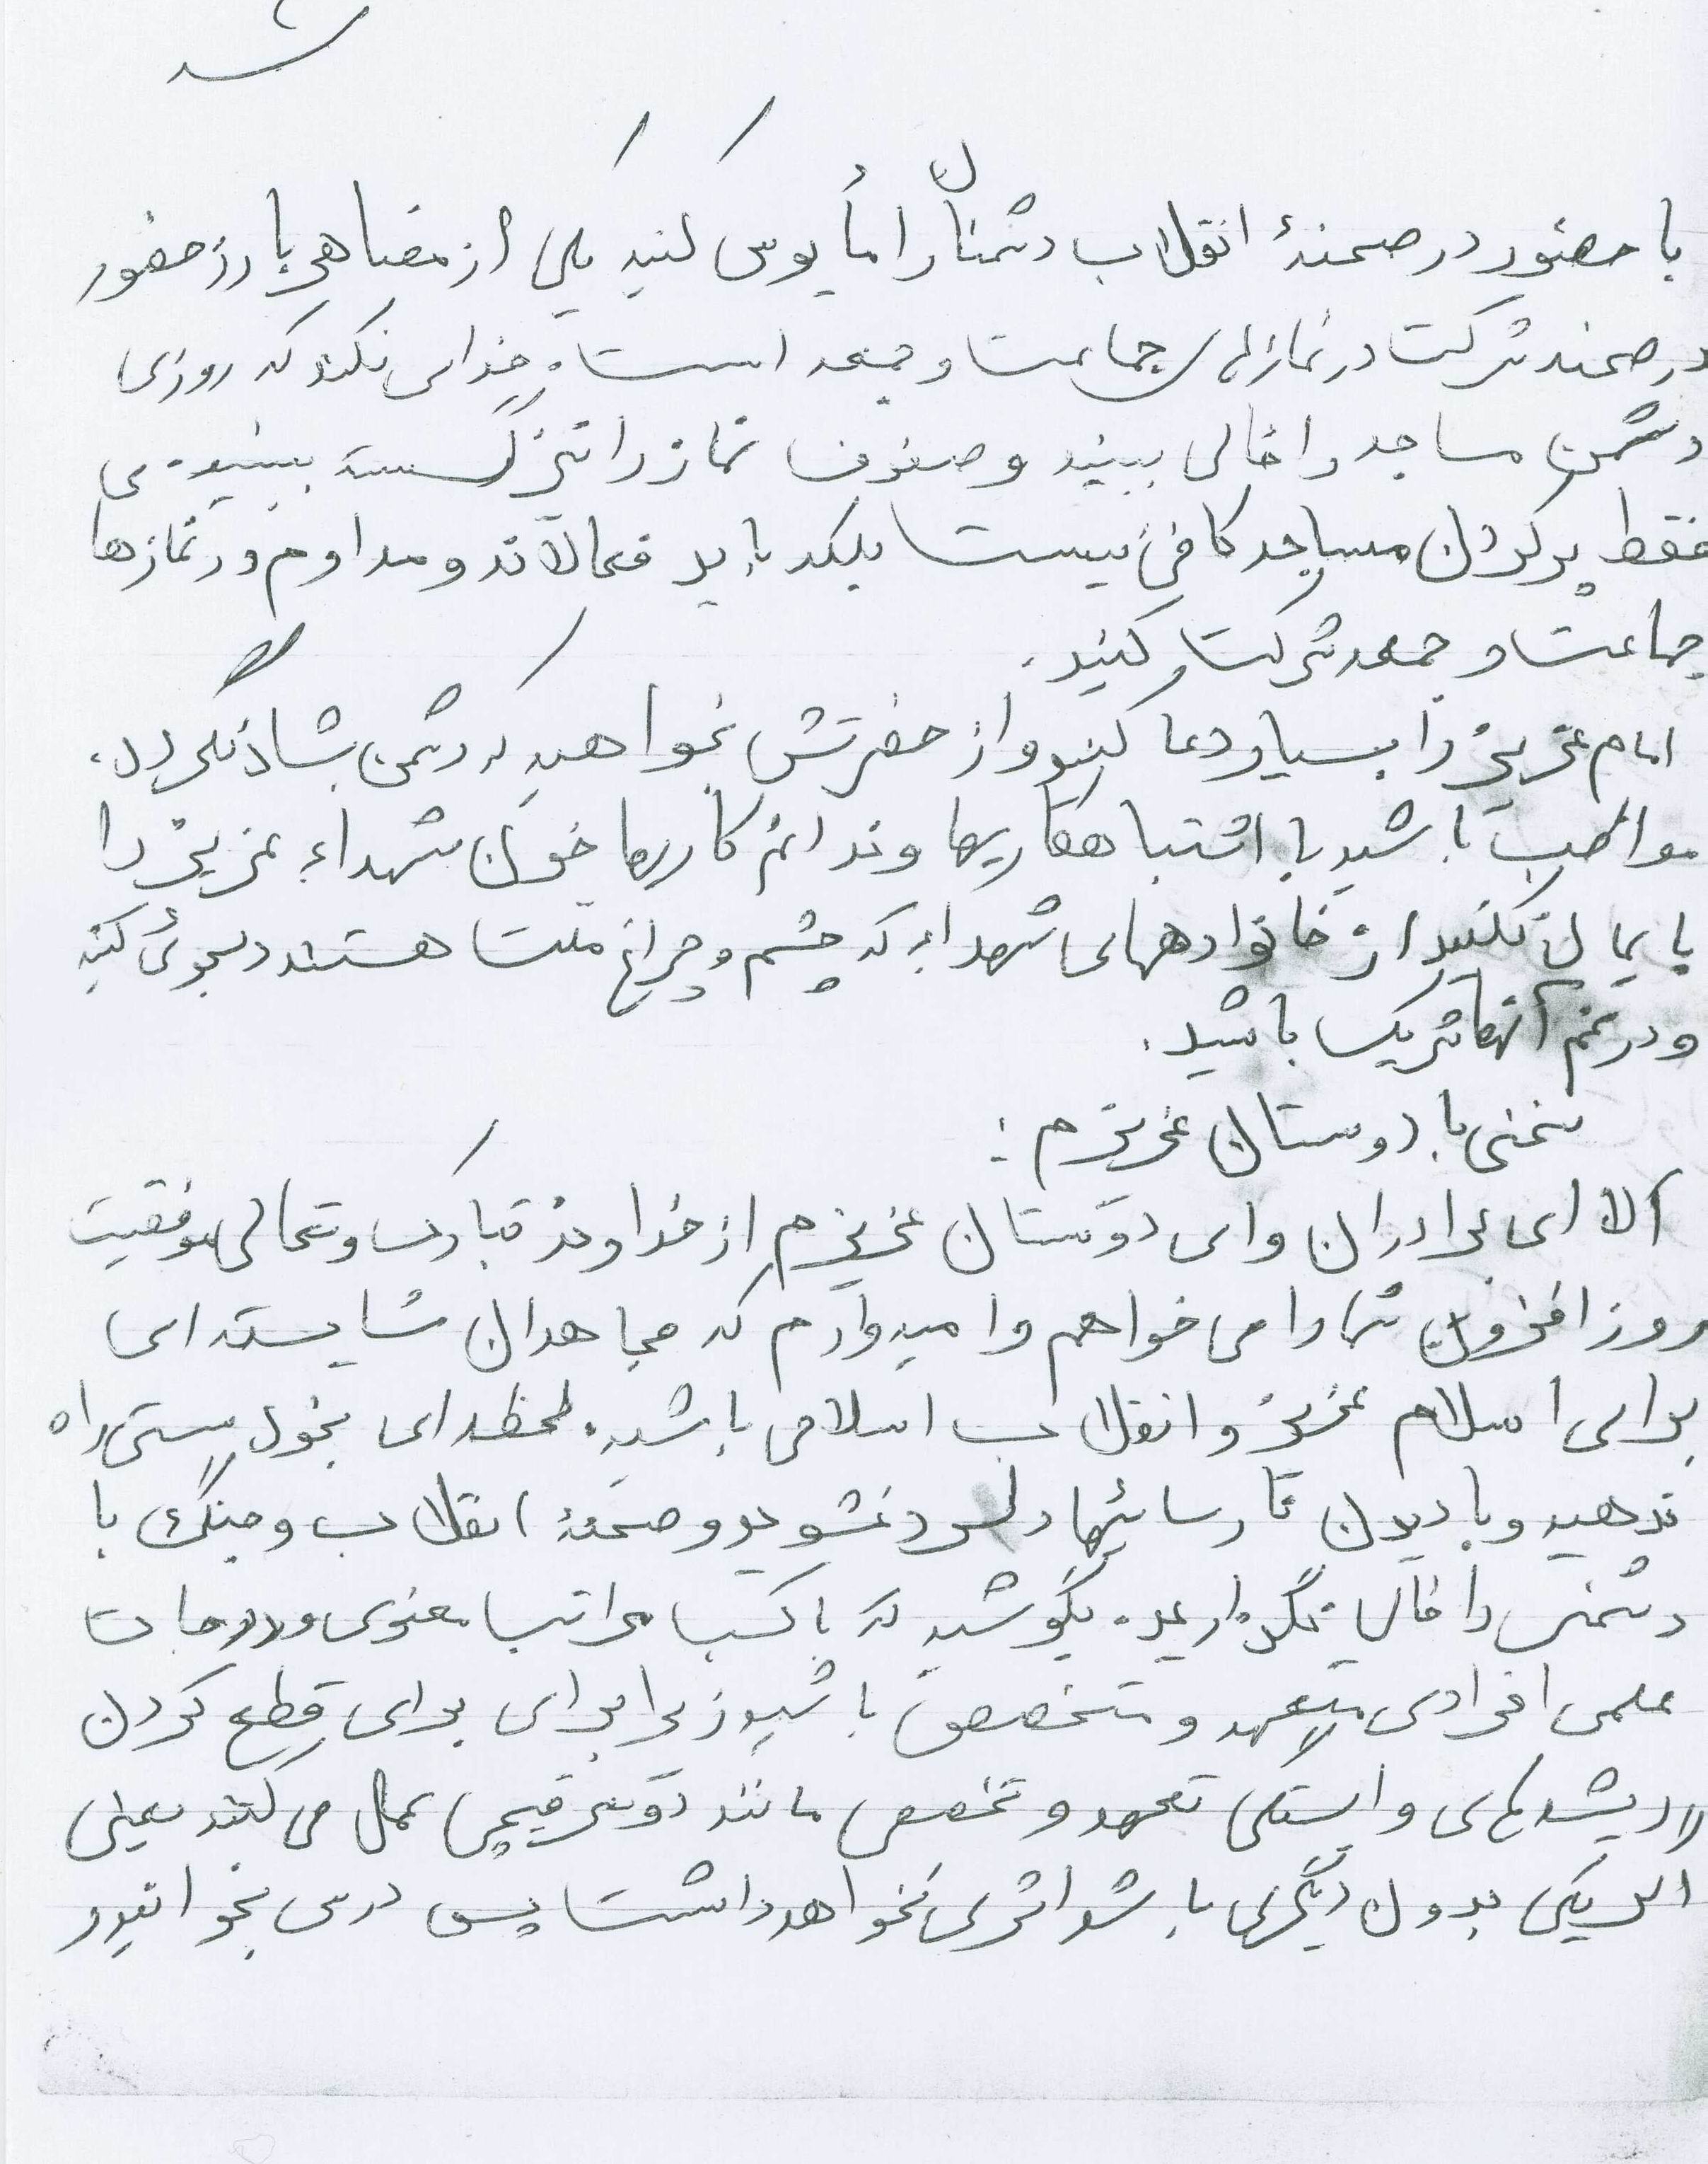 با حضور در صحنۀ انقلاب دشمنان را مأیوس کنید یکی از مضاهر بارز حضور
در صحنه شرکت در نمازهای جماعت و جمعه است. خدای نکند که روزی
دشمن مساجد را خالی ببیند و صفوف نماز را نیز گسسته ببیند.
فقط پر کردن مساجد کافی نیست بلکه باید فعالانه و مداوم در نمازها
جماعت و جمعه شرکت کنید.
امام عزیز را بسیار دعا کنید و از حضرتش بخواهید که دشمن شاد نگردد.
مواظب باشید با اشتباهکاریها و ندانم کاریها خون شهداء عزیز را
پایمال نکنید از خانوادههای شهداء که چشم و چراغ ملت هستند دلجوئی کنید
و در غم آنها شریک باشید.
سخنی با دوستان عزیزم :
الا ای برادران و ای دوستان عزیزم از خداوند تبارک و تعالی موفقیت
روزافزون شما را می خواهم و امیدوارم که مجاهدان شایسته ای
برای اسلام عزیز و انقلاب اسلامی باشید. لحظه ای بخود سستی راه
ندهید و با دیدن نارسائیها دلسرد نشوید و صحنۀ انقلاب و جنگ با
دشمن را خالی نگذارید. بکوشید که با کسب مراتب معنوی و درجات
علمی افرادی متعهد و متخصص باشید زیرا برای برای قطع کردن
ریشه های وابستگی تعهد و تخصص مانند دو سر قیچی عمل می کنند یعنی
اگر یکی بدون دیگری باشد اثری نخواهد داشت پس درس بخوانید و